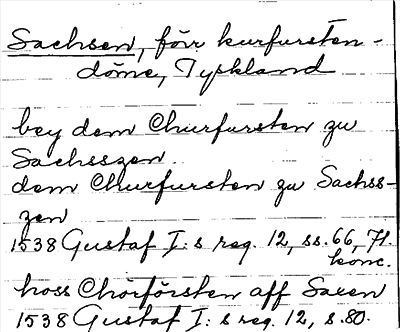 Sachsen, förr kurfursten-
döme, Tyskland
bey dem Churfursten zu
Sachsszen.
dem Churfursten zu Sachss-
zen
1538 Gustaf I:s reg. 12, ss. 66, 71.
konc.
hoss Chörförsten aff Saxen
1538 Gustaf I:s reg. 12, s. 80.